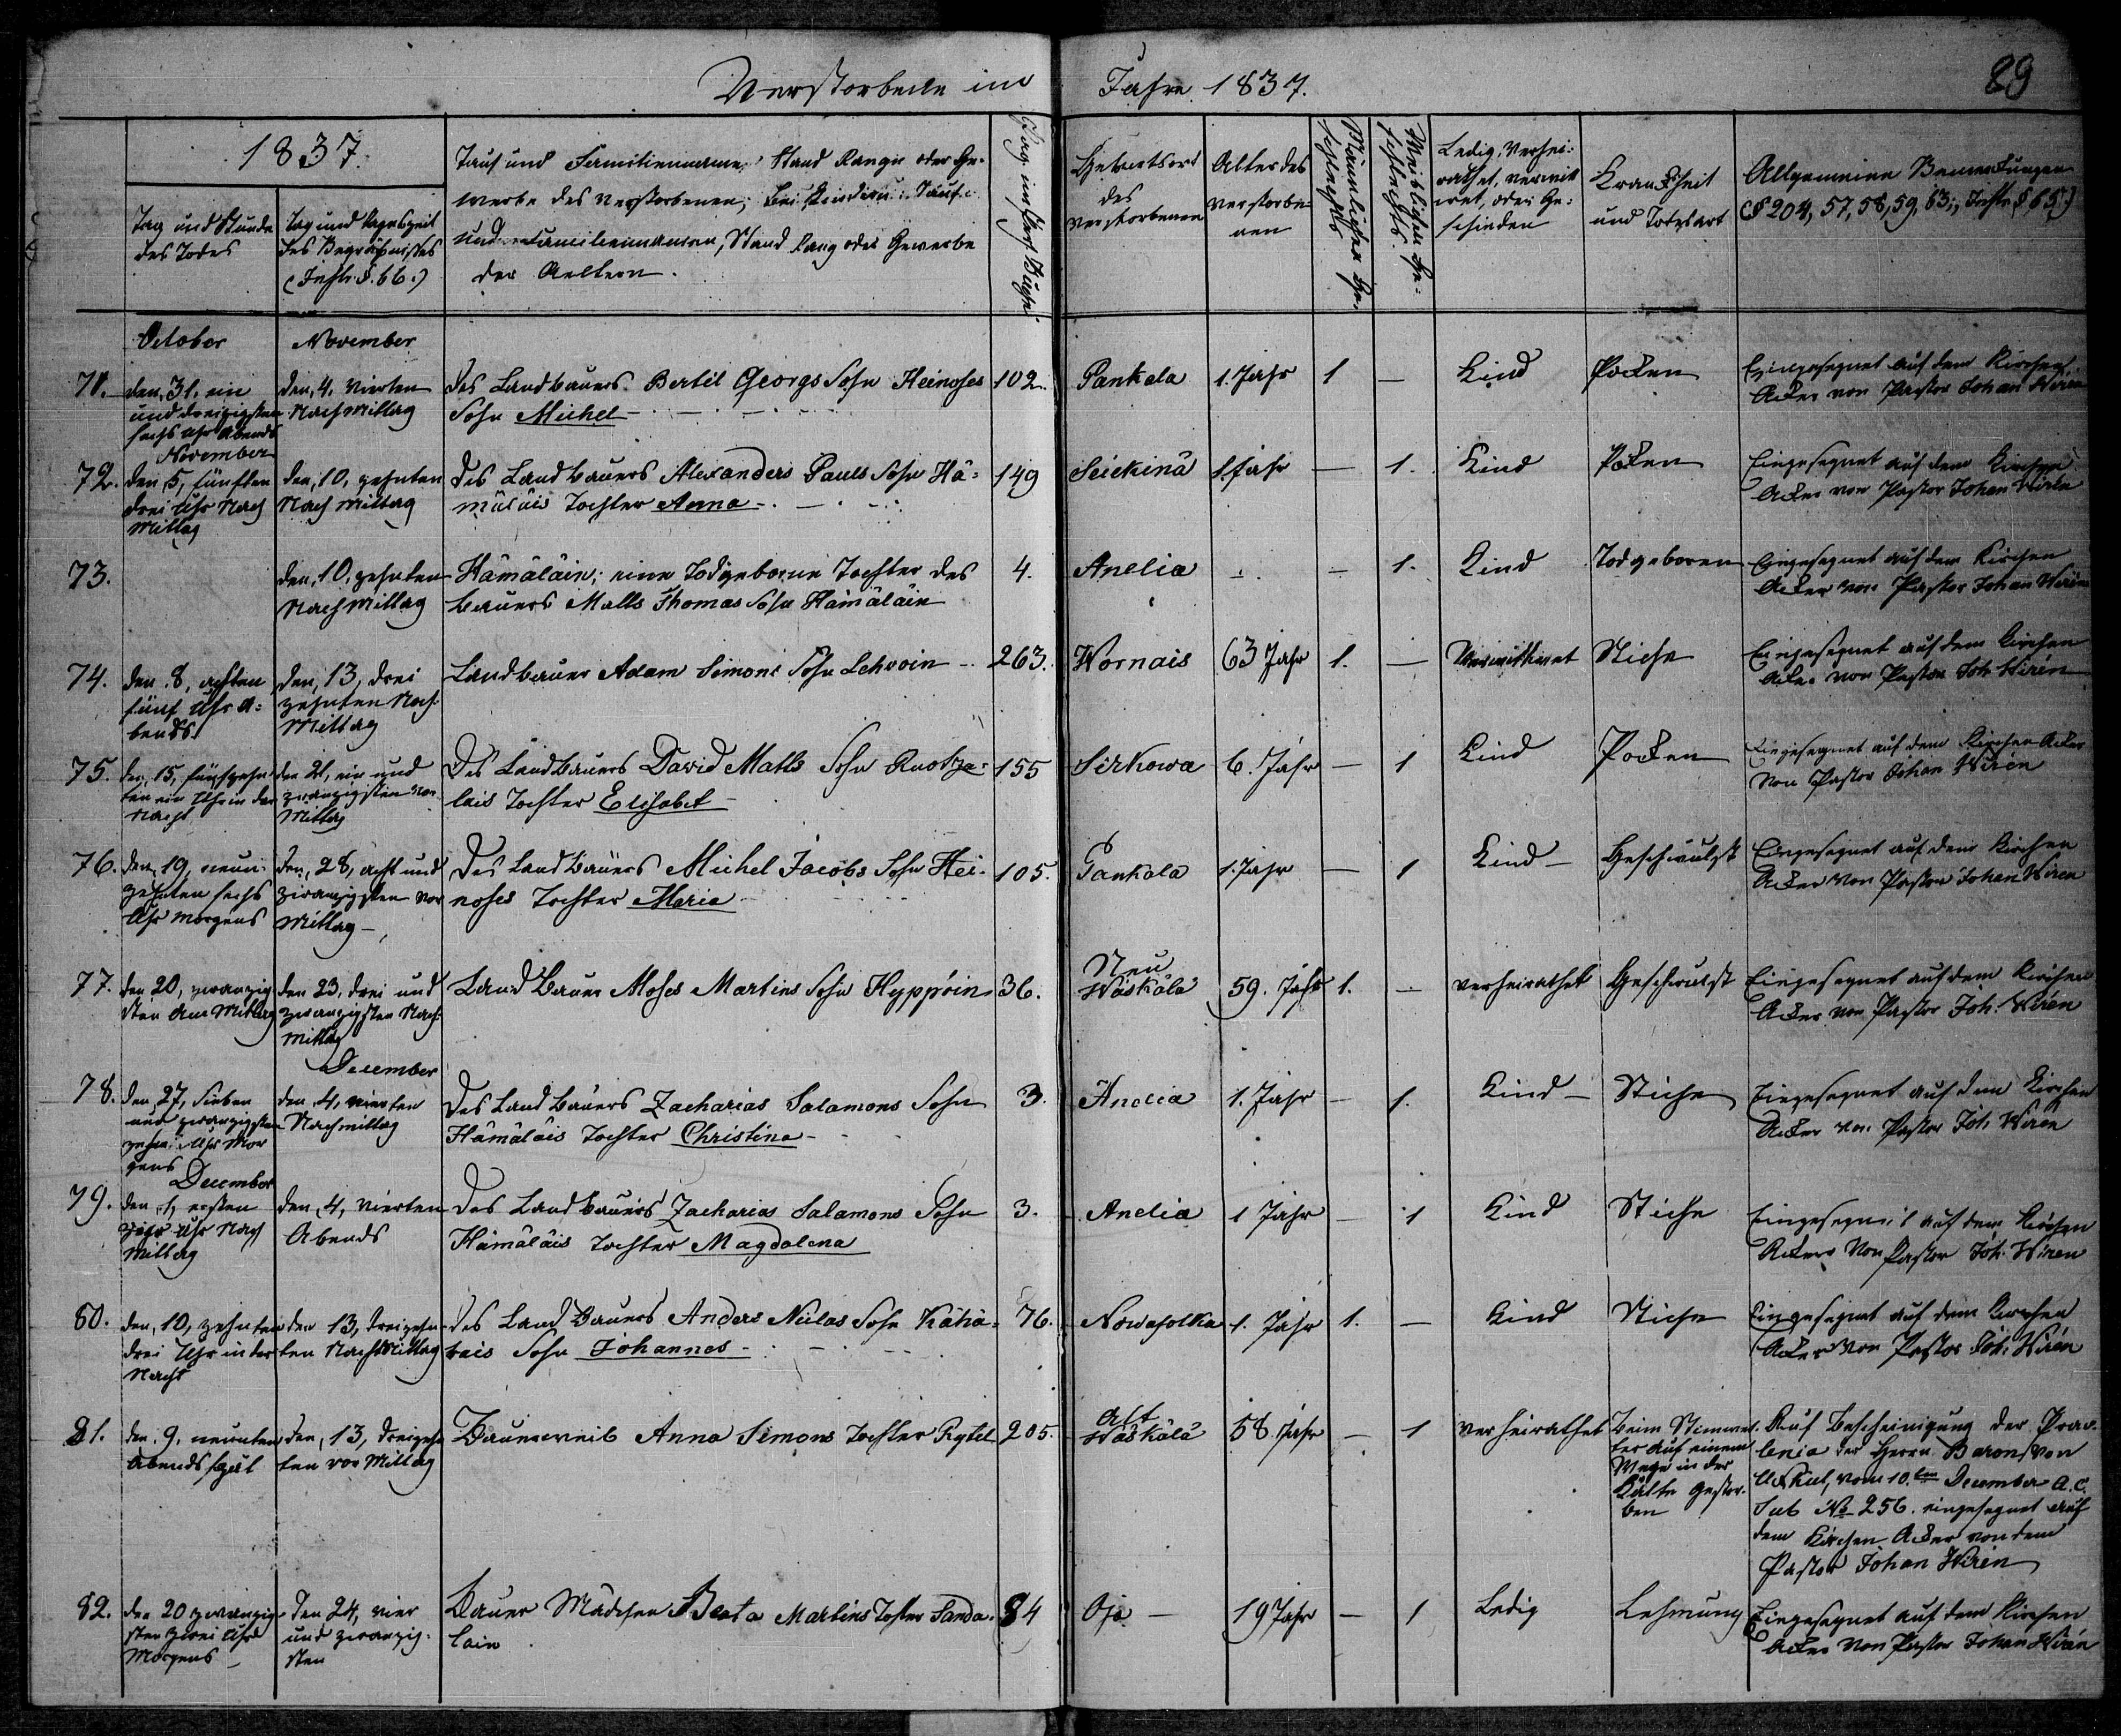 Verstorbene im Jahre 1837.
89
1837.
Tag und Stunde
des Todes
Tag und Tageszeit
des Begräbnisses
(Instr. §. 66.)
Tauf und Familienname, Stand Rang oder Ge-
werbe des Verstorbenen; bei Kindern: Tauf-
und Familiennamen, Stand Rang oder Gewerbe
der Aeltern.
Geburtsort
des
verstorbenen
Alter des
verstorbe-
nen
Männlichen Ge-
schlechts
Weiblichen Ge-
schlechts
Ledig, Verhei-
rathet, verwitt-
wet, oder Ge-
schieden
Krankheit
und Todesart
Allgemeine Bemerkungen
(§ 204, 57, 58, 59, 63; Instr. § 65.)
October
November
71. den, 31. ein
und dreizigsten
sechs Uhr Abends
den, 4. vierten
Nachmittag
Des Landbauers Bertil Georgs Sohn Heinoses
Sohn Michel
102.
Pankela
1. Jahr
1
—
Kind
Pocken
Eingesegnet auf dem Kirchen
Acker von Pastor Johan Wirén
November
72. den, 5, fünften
drei Uhr Nach
Mittag
den, 10, zehnten
Nach Mittag
Des Landbauers Alexanders Pauls Sohn Hä-
mäläis Tochter Anna
149
Seickinä
1. Jahr
—
1.
Kind
Pocken
Eingesegnet auf dem Kirchen
Acker von Pastor Johan Wirén
73.
den, 10. zehnten
Nach Mittag
Hämäläin; eine Todgeborne Tochter des
Bauers Matts Thomas Sohn Hämäläin
4.
Anelia
—
1.
Kind
Todgeboren
Eingesegnet auf dem Kirchen
Acker von Pastor Johan Wirén
74. den 8, achten
fünf Uhr A-
bends.
den, 13, drei
zehnten Nach
Mittag
Landbauer Adam Simons Sohn Lehvoin
263.
Wornais
63 Jahr
1.
—
Verwittwet
Stiche
Eingesegnet auf dem Kirchen
Acker von Pastor Joh Wirén
75. den, 15, fünfzehn-
ten ein Uhr in der
Nacht
den 21, ein und
zwanzigsten vor
Mittag
Des Landbauers David Matts Sohn
lais Tochter Elisabet
155
Sirkowa
6. Jahr
—
1
Kind
Pocken
Eingesegnet auf dem Kirchen Acker
von Pastor Johan Wirén
76. den, 19, neun-
zehnten sechs
Uhr Morgens
den, 28, acht und
zwanzigsten vor
Mittag
Des Landbauers Michel Jacobs Sohn Hei-
noses Tochter Maria
105.
Pankala
1. Jahr
—
1
Kind
Geschwulst
Eingesegnet auf dem Kirchen
Acker von Pastor Johan Wirén
77. den 20, zwanzig
sten Am Mittag
den 23, drei und
zwanzigsten Nach
Mittag
Land Bauer Moses Martins Sohn Hyppöin
36.
Neu
Wäskälä
59. Jahr
1.
—
verheirathet
Geschwulst
Eingesegnet auf dem Kirchen
Acker von Pastor Joh. Wirén
December
78. den 27, sieben
und zwanzigsten
zehn Uhr Mor
gens
den, 4, vierten
Nachmittag
Des Land Bauers Zacharias Salamons Sohn
Hämäläis Tochter Christina
3.
Anelia
1. Jahr
—
1.
Kind
Stiche
Eingesegnet auf dem Kirchen
Acker von Pastor Joh. Wirén
December
79. den, 1, ersten
Uhr Nach
Mittag
den, 4, vierten
Abends
Des Land bauers Zacharias Salamons Sohn
Hämäläis Tochter Magdalena
3.
Anelia
1 Jahr
—
1
Kind
Stiche
Eingesegnet auf dem Kirchen
Acker von Pastor Joh. Wirén
80. den, 10, zehnten
drei Uhr in der
Nacht
den 13, dreizehn-
ten Nach Mittag
Des Land Bauers Anders Niclas Sohn Kähä-
rais Sohn Johannes
76.
Nowasolka
1. Jahr
1.
—
Kind
Stiche
Eingesegnet auf dem Kirchen
Acker von Pastor Joh. Wirén
81. den 9. neunten
Abends spät
den, 13, dreizehn
ten vor Mittag
Bauerweib Anna Simons Tochter Pytel
205.
Alt
Wäskälä
58. Jahr
—
1
verheirathet
beim
auf einem
Wege in der
Kälte gestor-
ben
Auf Bescheinigung der Praw-
lenia der Herrn Barons von
Uxkul, vom 10.ten December a. c.
Sub No 256. eingesegnet auf
dem Kirchen Acker von dem
Pastor Johan Wirén
82. den 20 zwanzig
sten zwei Uhr
Morgens
den 24, vier
und zwanzig-
sten
Bauer Mädchen Beata Martins Tochter Sanda-
lain
84
Oja
19 Jahr
—
1
Ledig
Lehmung
Eingesegnet auf dem Kirchen
Acker von Pastor Johan Wirén